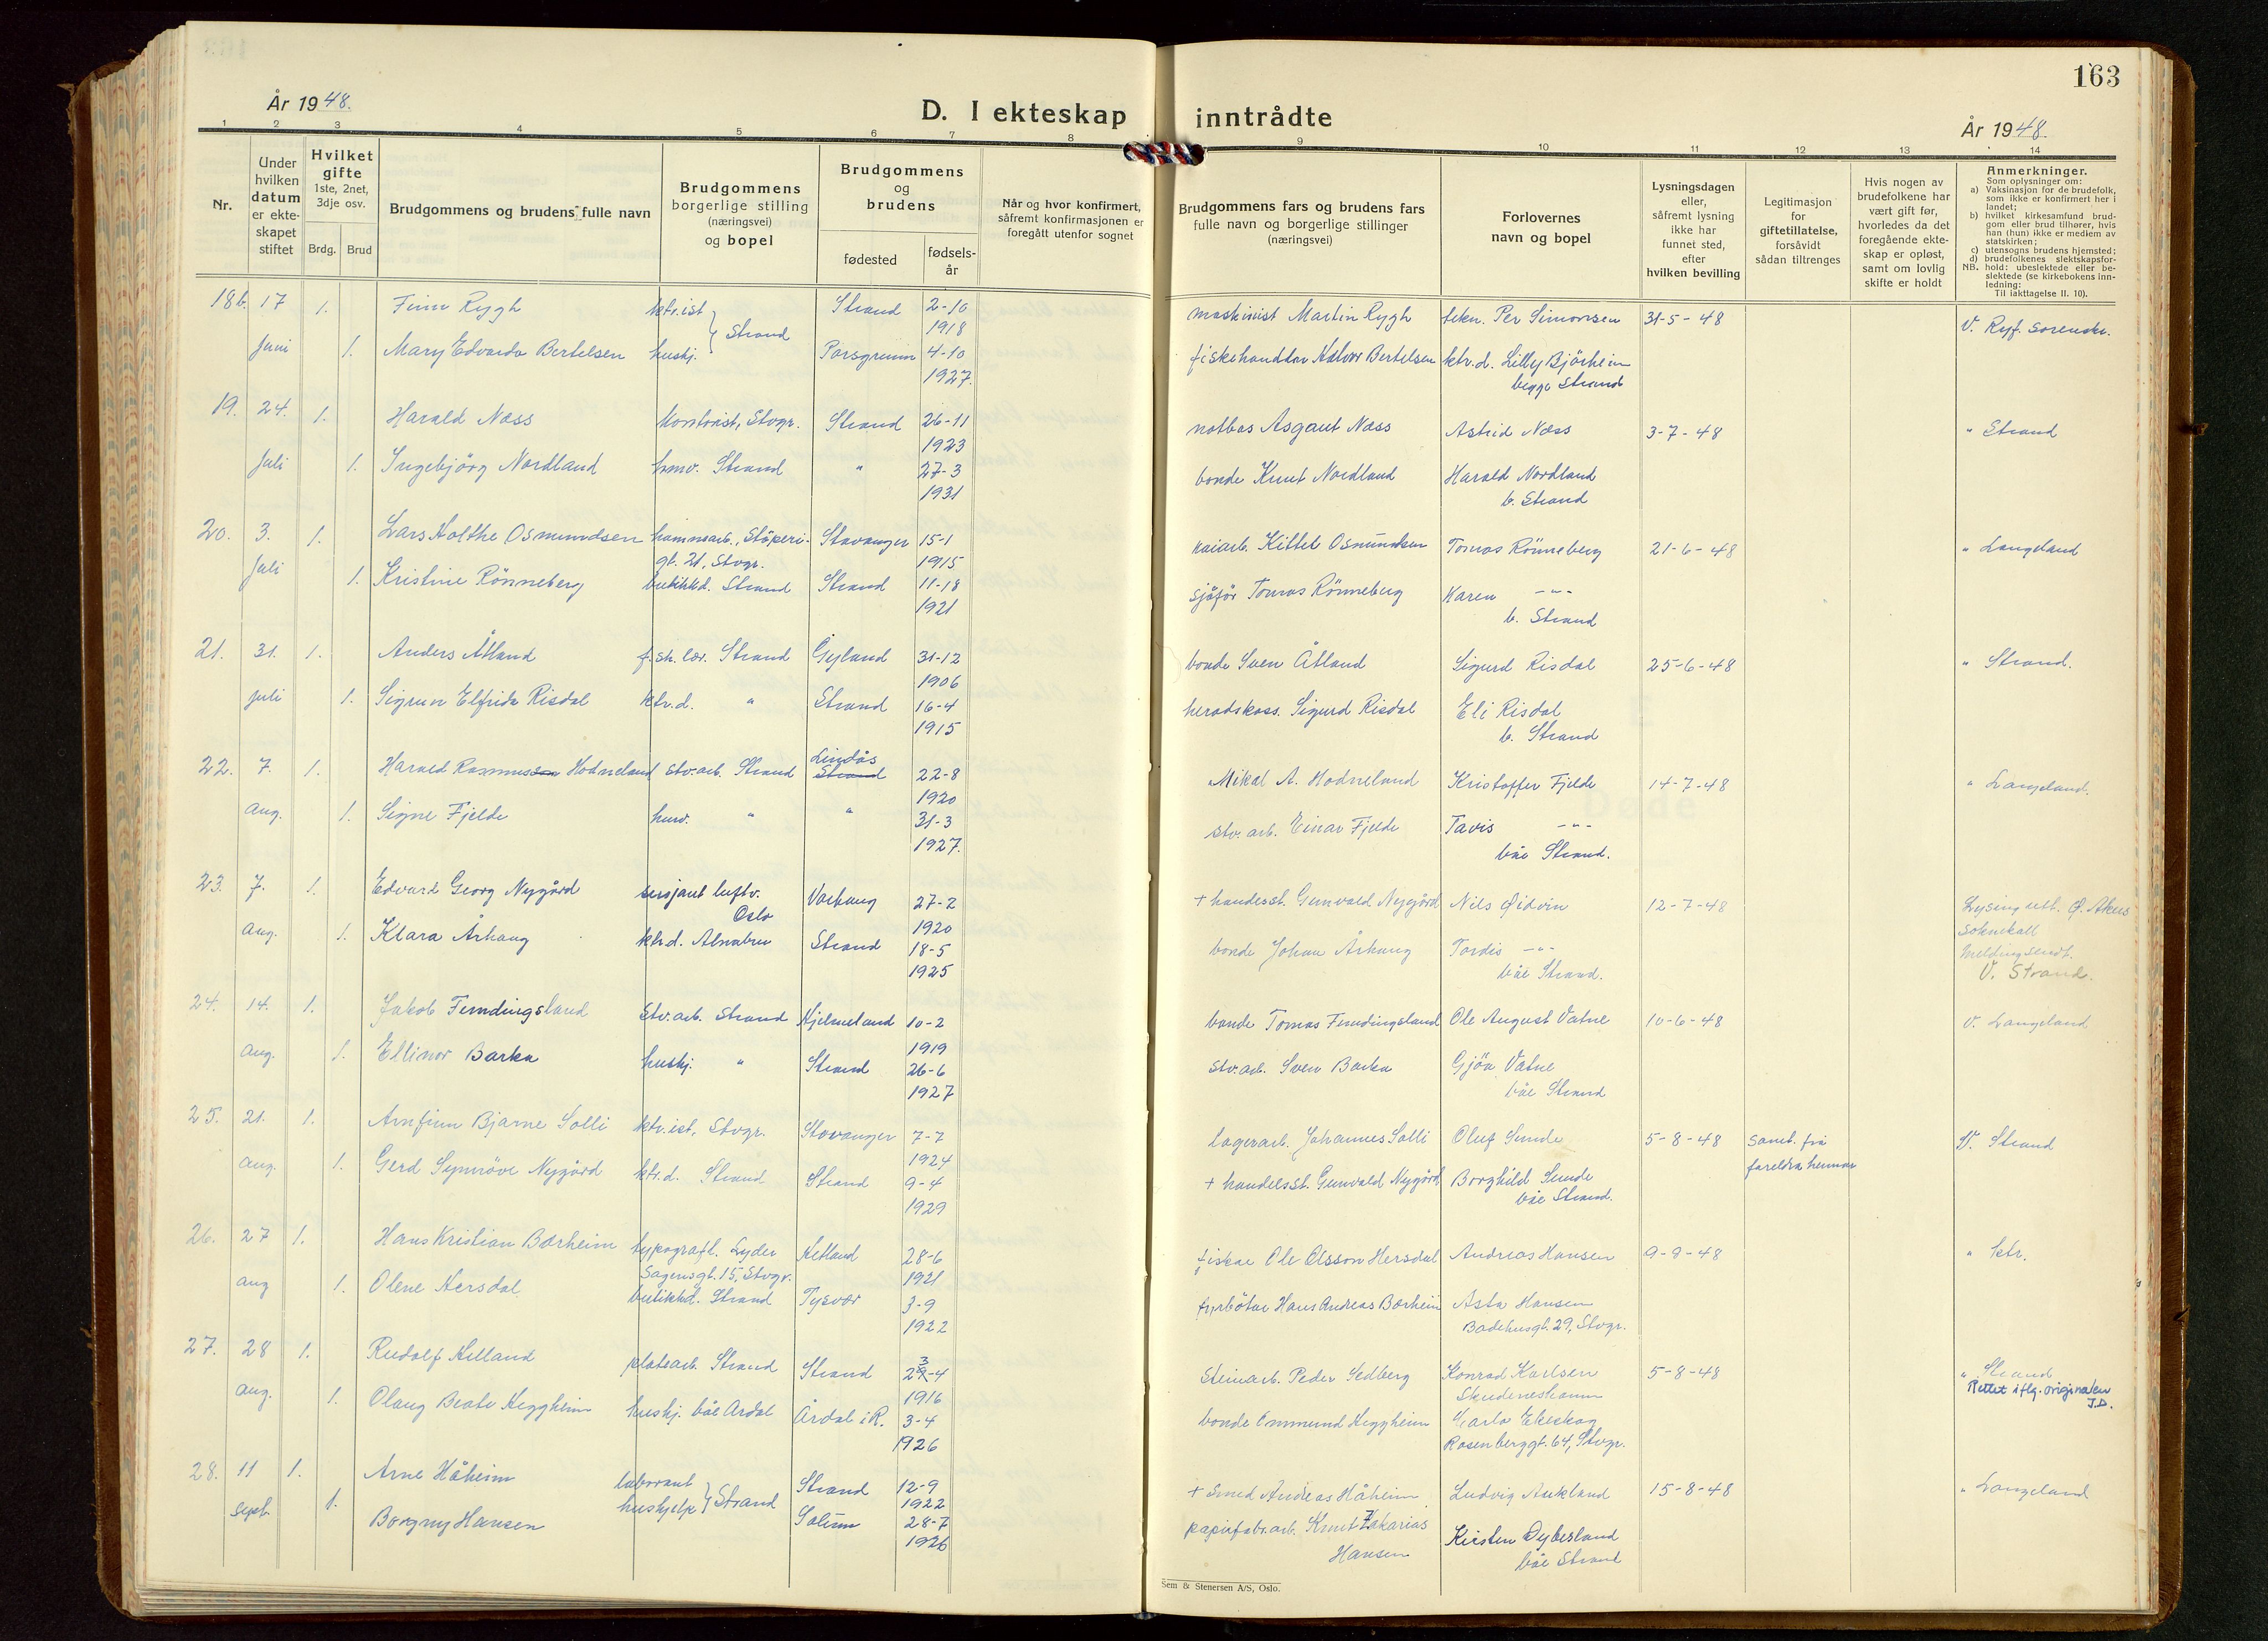 163
År 1948.
D. I ekteskap inntrådte
År 1948.
1 2 3 4 5 6 7 8 9 10 11 12 13 14
Nr.
Under hvilken datum er ekteskapet stiftet
Hvilket gifte 1ste, 2net, 3dje osv.
Brdg. Brud
Brudgommens og brudens fulle navn
Brudgommens borgerlige stilling (næringsvei) og bopel
Brudgommens og brudens
fødested
fødselsår
Når og hvor konfirmert, såfremt konfirmasjonen er foregått utenfor sognet
Brudgommens fars og brudens fars fulle navn og borgerlige stillinger (næringsvei)
Forlovernes navn og bopel
Lysningsdagen eller, såfremt lysning ikke har funnet sted, efter hvilken bevilling
Legitimasjon for giftetillatelse, forsåvidt sådan tiltrenges
Hvis nogen av brudefolkene har vært gift før, hvorledes da det foregående ekteskap er opløst, samt om lovlig skifte er holdt
Anmerkninger.
Som oplysninger om:
a) Vaksinasjon for de brudefolk, som ikke er konfirmert her i landet;
b) hvilket kirkesamfund brudgom eller brud tilhører, hvis han (hun) ikke er medlem av statskirken;
c) utensogns brudens hjemsted;
d) brudefolkenes slektskapsforhold: ubeslektede eller beslektede (se kirkebokens innledning:
NB.
Til iakttagelse II. 10).
18b. 17 1. Finn Rygh ktr.ist Strand 2-10 1918 maskinist Martin Rygh tekn. Per Simonsen 31-5-48 V. Ryf. Sorenskr.
Juni 1. Mary Edvarda Bertelsen huskj. } Strand Porsgrunn 4-10 1927. fiskehandlar Halvor Bertelsen ktr.d. Lilly Bjørheim begge Strand
19. 24. 1. Harald Næss kontorist, Stvgr. Strand 26-11 1923 notbas Asgaut Næss Astrid Næss 3-7-48 " Strand
Juli 1. Ingebjörg Nordland husv. Strand " 27-3 1931 bonde Knut Nordland Harald Nordland b. Strand
20. 3. 1. Lars Holthe Osmundsen hamnearb., Stöperigt. 21, Stvgr. Stavanger 15-1 1915 kaiarb. Kittel Osmundsen Tomas Rönneberg 21-6-48 " Langeland
Juli 1. Kristine Rönneberg butikkd. Strand Strand 11-18 1921 sjåför Tomas Rönneberg Karen -"- b. Strand
21. 31. 1. Anders Åtland f.sk.lær. Strand Gyland 31-12 1906 bonde Sven Åtland Sigurd Risdal 25-6-48 " Strand.
Juli 1. Sigrun Elfrida Risdal ktr.d. " Strand 16-4 1915 heradskass. Sigurd Risdal Eli Risdal b. Strand
22. 7. 1. Harald Rasmussen Hodneland stv.arb. Strand Lindås Strand 22-8 1920 Mikal A. Hodneland Kristoffer Fjelde 14-7-48 " Langeland.
aug. 1. Signe Fjelde husv. " " 31-3 1927. stv.arb. Einar Fjelde Tavis -"- båe Strand.
23. 7. 1. Edvard Georg Nygård sersjant luftv. Oslo Varhaug 27-2 1920 + handelsst. Gunvald Nygård Nils Øidvin 12-7-48 Lysing utst. Ø. Akers soknekall
aug. 1. Klara Århaug ktr.d. Alnabru Strand 18-5 1925 bonde Johan Århaug Tordis -"- båe Strand. Melding sendt. V. Strand.
24. 14. 1. Jakob Fundingsland Stv.arb. Strand Hjelmeland 10-2 1919 bonde Tomas Fundingsland Ole August Vatne 10-6-48 V. Langeland
aug. 1. Ellinor Barka huskj. " Strand 26-6 1927 Stv.arb. Sven Barka Gjöa Vatne båe Strand
25. 21. 1. Arnfinn Bjarne Solli ktr.ist, Stvgr. Stavanger 7-7 1924 lagerarb. Johannes Solli Oluf Sunde 5-8-48 Samt. frå foreldra hennar V. Strand
aug. 1. Gerd Synnöve Nygård ktr.d. Strand Strand 9-4 1929 + handelsst. Gunvald Nygård Borghild Sunde båe Strand.
26. 27 1. Hans Kristian Bærheim typograf l. Lyder Sagensgt. 15, Stvgr. Hetland 28-6 1921 fiskar Ole Olsson Hersdal Andreas Hansen 9-9-48 " ktr.
aug 1. Olene Hersdal. butikkd. Strand Tysvær 3-9 1922 fyrbötar Hans Andreas Bærheim Asta Hansen Badehusgt. 29, Stvgr.
27. 28 1. Rudolf Helland platearb. Strand Strand 23-4 1916 Steinarb. Peder Sedberg Konrad Karlsen Skudeneshamn 5-8-48 " Strand Rettet iflg. originalen J.D.
aug. 1. Olaug Beate Heggheim huskj. båe Årdal Årdal i R. 3-4 1926 bonde Ommund Heggheim Carla Ekeskog Rosenberggt. 64, Stvgr.
28. 11 1. Arne Håheim laborant Strand 12-9 1922 + Smed Andreas Håheim Ludvig Aukland 15-8-48 " Langeland
sept. 1. Borgny Hansen hushjelp } Strand Solum 28-7 1926 papirfabr.arb. Knut Zakarias Hansen Kirsten Dybesland båe Strand
Sem & Stenersen A/S, Oslo.